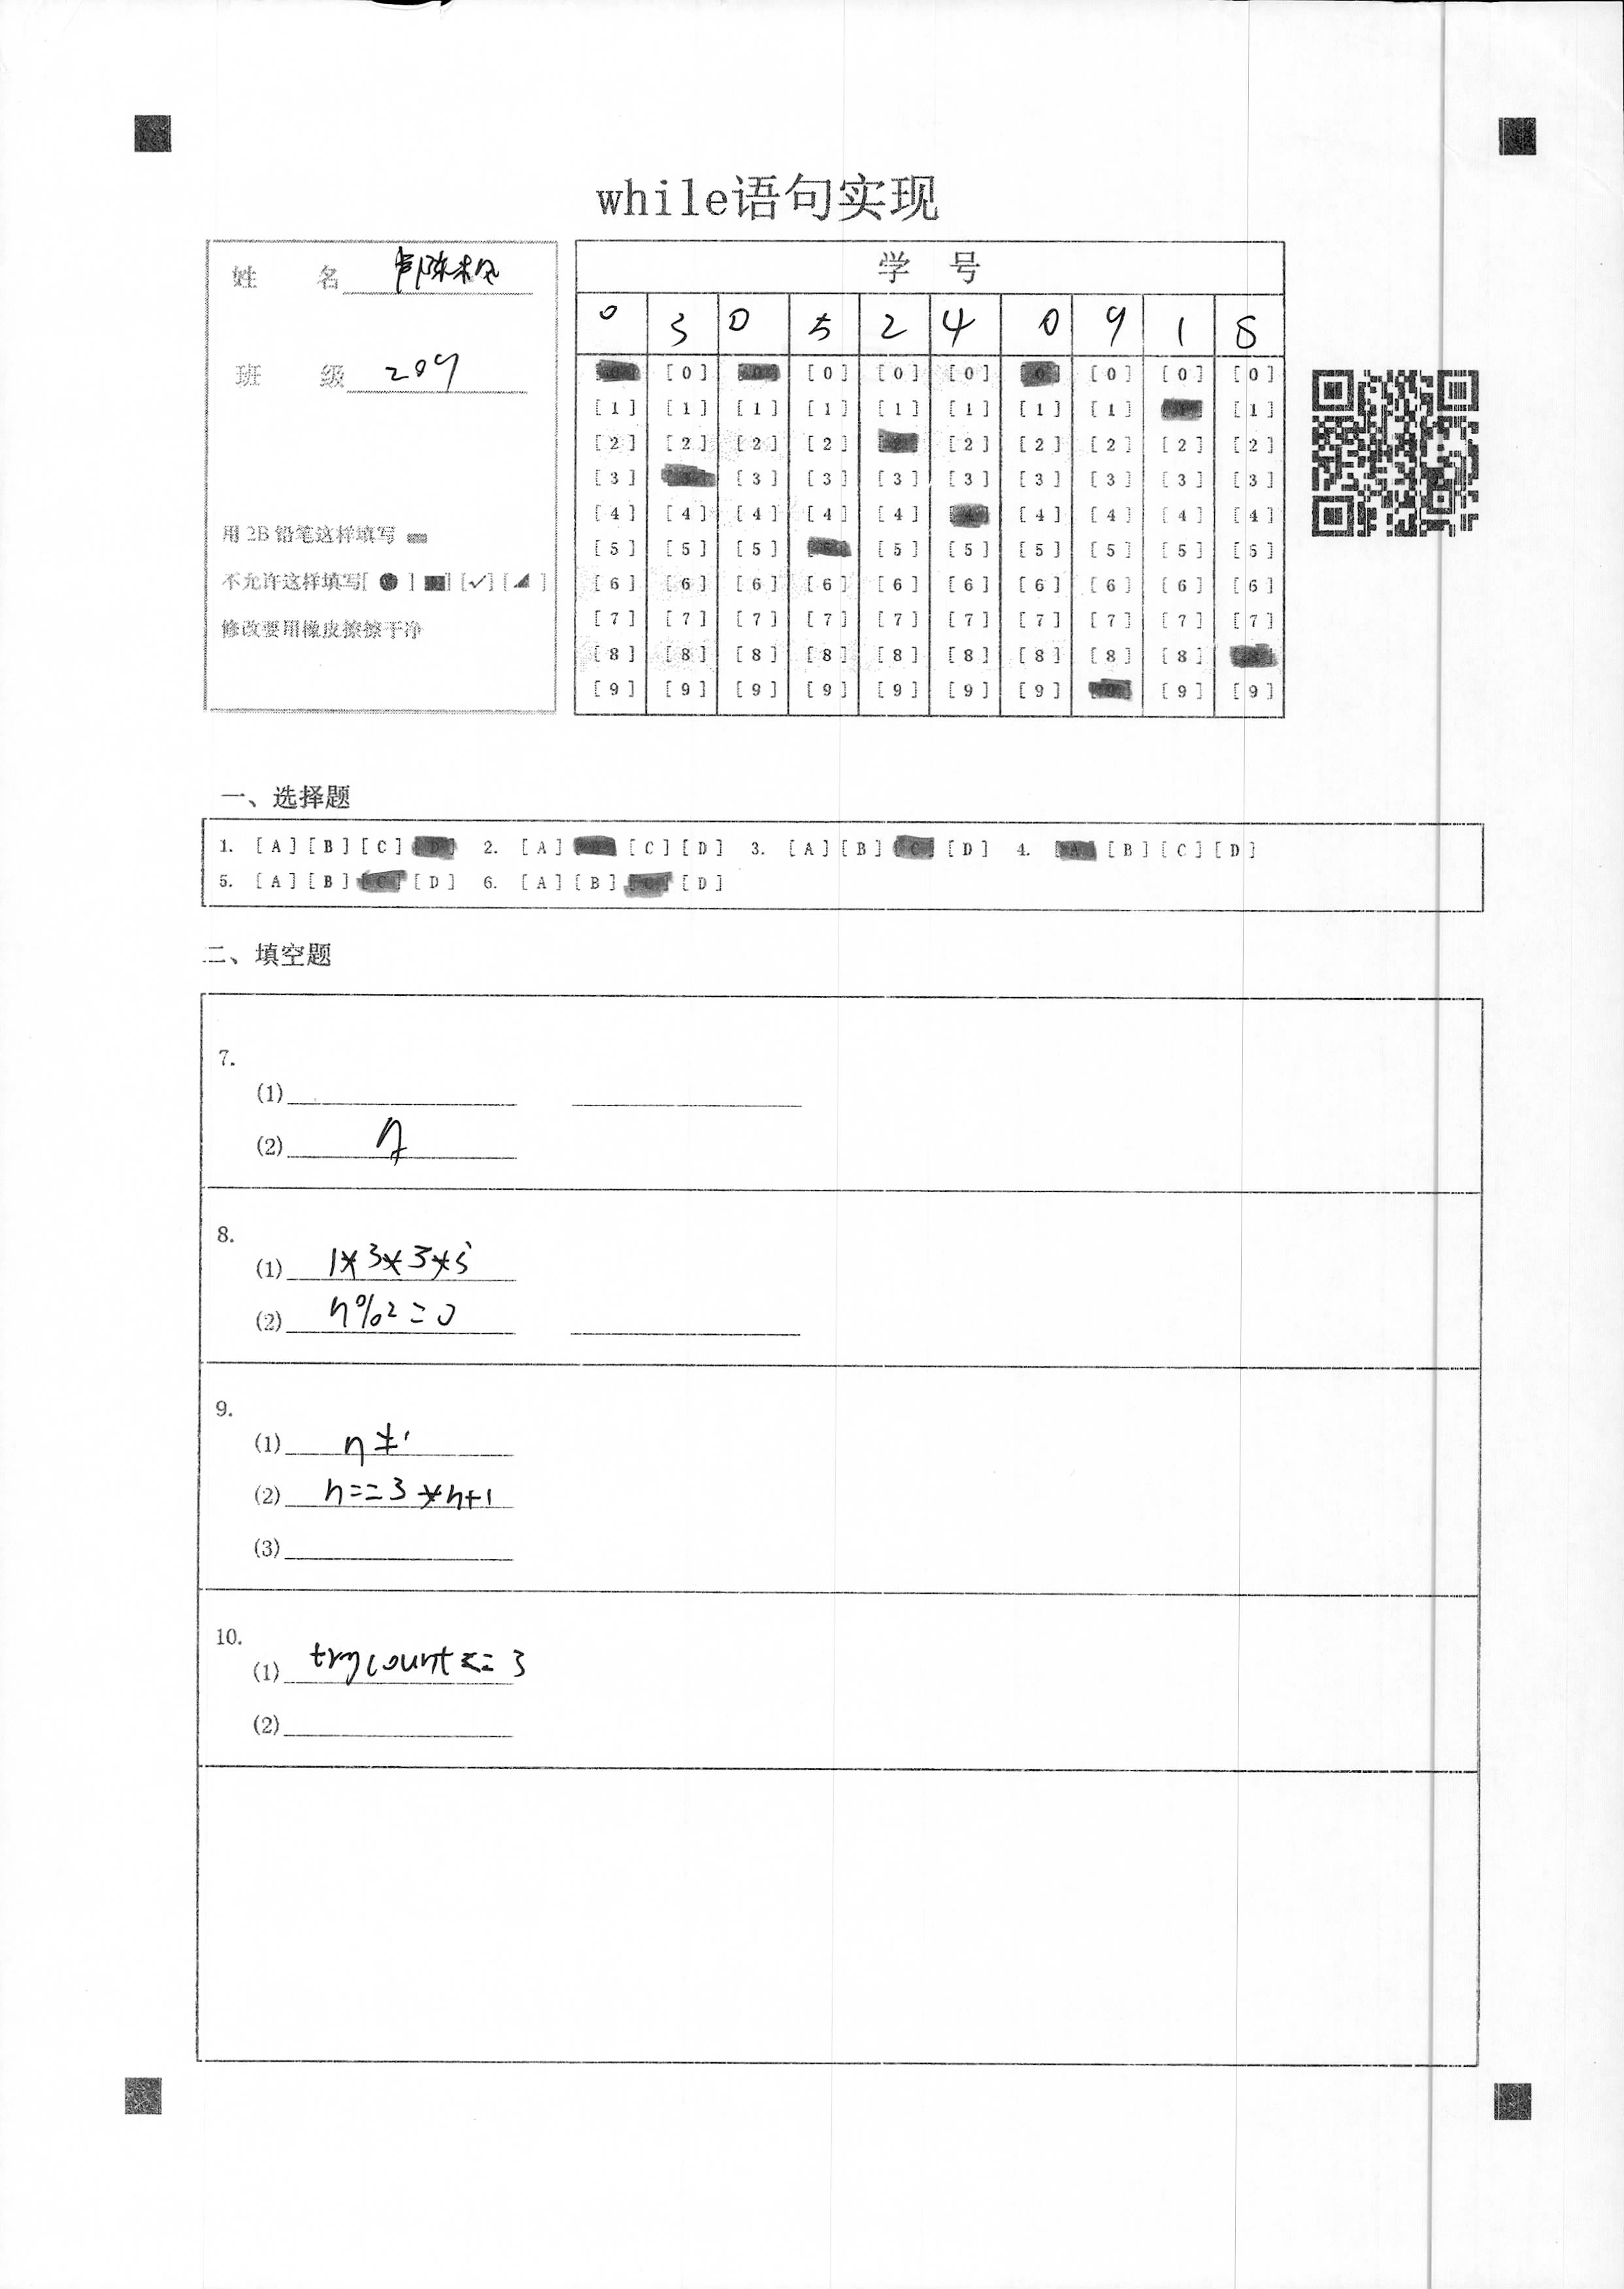 while语句实现
姓 名
班 级 209
用 2B 铅笔这样填写
不允许这样填写[ ● ] [■] [✓] [◢ ]
修改要用橡皮擦擦干净
学 号
0 3 0 5 2 4 0 9 1 8
[0] [0] [0] [0] [0] [0] [0] [0] [0] [0]
[1] [1] [1] [1] [1] [1] [1] [1] [1] [1]
[2] [2] [2] [2] [2] [2] [2] [2] [2] [2]
[3] [3] [3] [3] [3] [3] [3] [3] [3] [3]
[4] [4] [4] [4] [4] [4] [4] [4] [4] [4]
[5] [5] [5] [5] [5] [5] [5] [5] [5] [5]
[6] [6] [6] [6] [6] [6] [6] [6] [6] [6]
[7] [7] [7] [7] [7] [7] [7] [7] [7] [7]
[8] [8] [8] [8] [8] [8] [8] [8] [8] [8]
[9] [9] [9] [9] [9] [9] [9] [9] [9] [9]
一、选择题
1. [A] [B] [C] [D] 2. [A] [B] [C] [D] 3. [A] [B] [C] [D] 4. [A] [B] [C] [D]
5. [A] [B] [C] [D] 6. [A] [B] [C] [D]
二、填空题
7.
(1)
(2)
8.
(1) 1*3*3*5
(2) n%2=0
9.
(1) n≠1
(2) n==3*n+1
(3)
10.
(1) trycount<=3
(2)